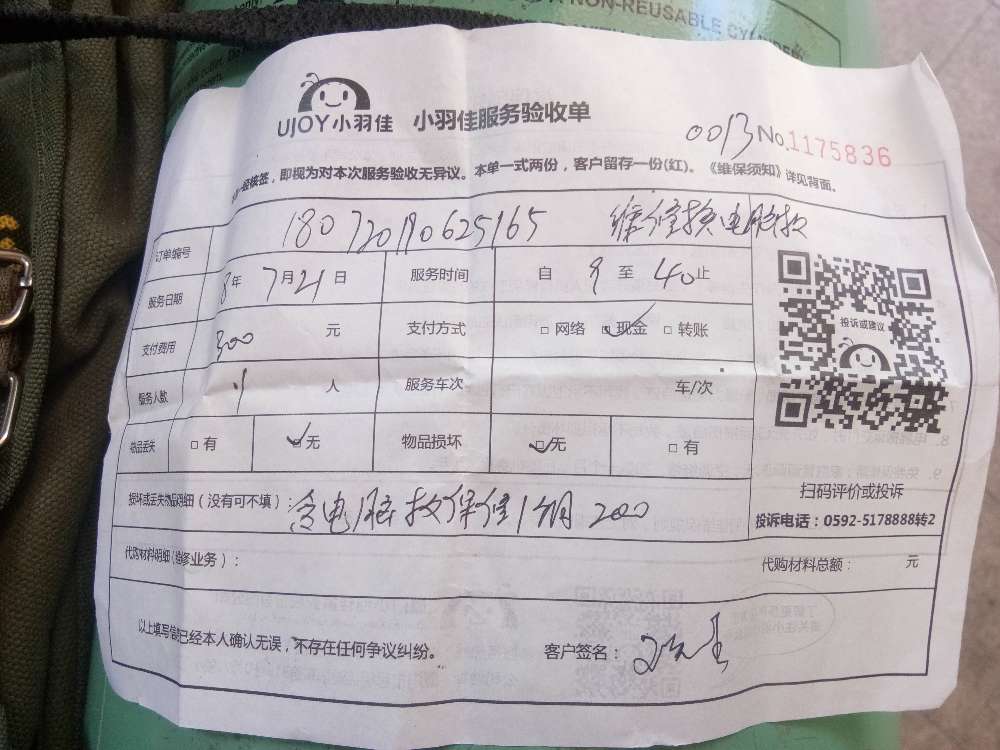 NON-REUSABLE CYLINDER
UJOY小羽佳 小羽佳服务验收单
0013 No.1175836
一经核签，即视为对本次服务验收无异议。本单一式两份，客户留存一份(红)。《维保须知》详见背面。
订单编号 180720190625165 维修换电脑板
服务日期 8年7月21日 服务时间 自 9 至 40 止
支付费用 300 元 支付方式 □网络 □现金 □转账
服务人数 1 人 服务车次 车/次
物品丢失 □有 □无 物品损坏 □无 □有
投诉或建议
扫码评价或投诉
投诉电话：0592-5178888转2
损坏或丢失物品明细（没有可不填）：含电脑板保修1个月200
代购材料明细(维修业务)：
代购材料总额： 元
以上填写信息已经本人确认无误，不存在任何争议纠纷。 客户签名：